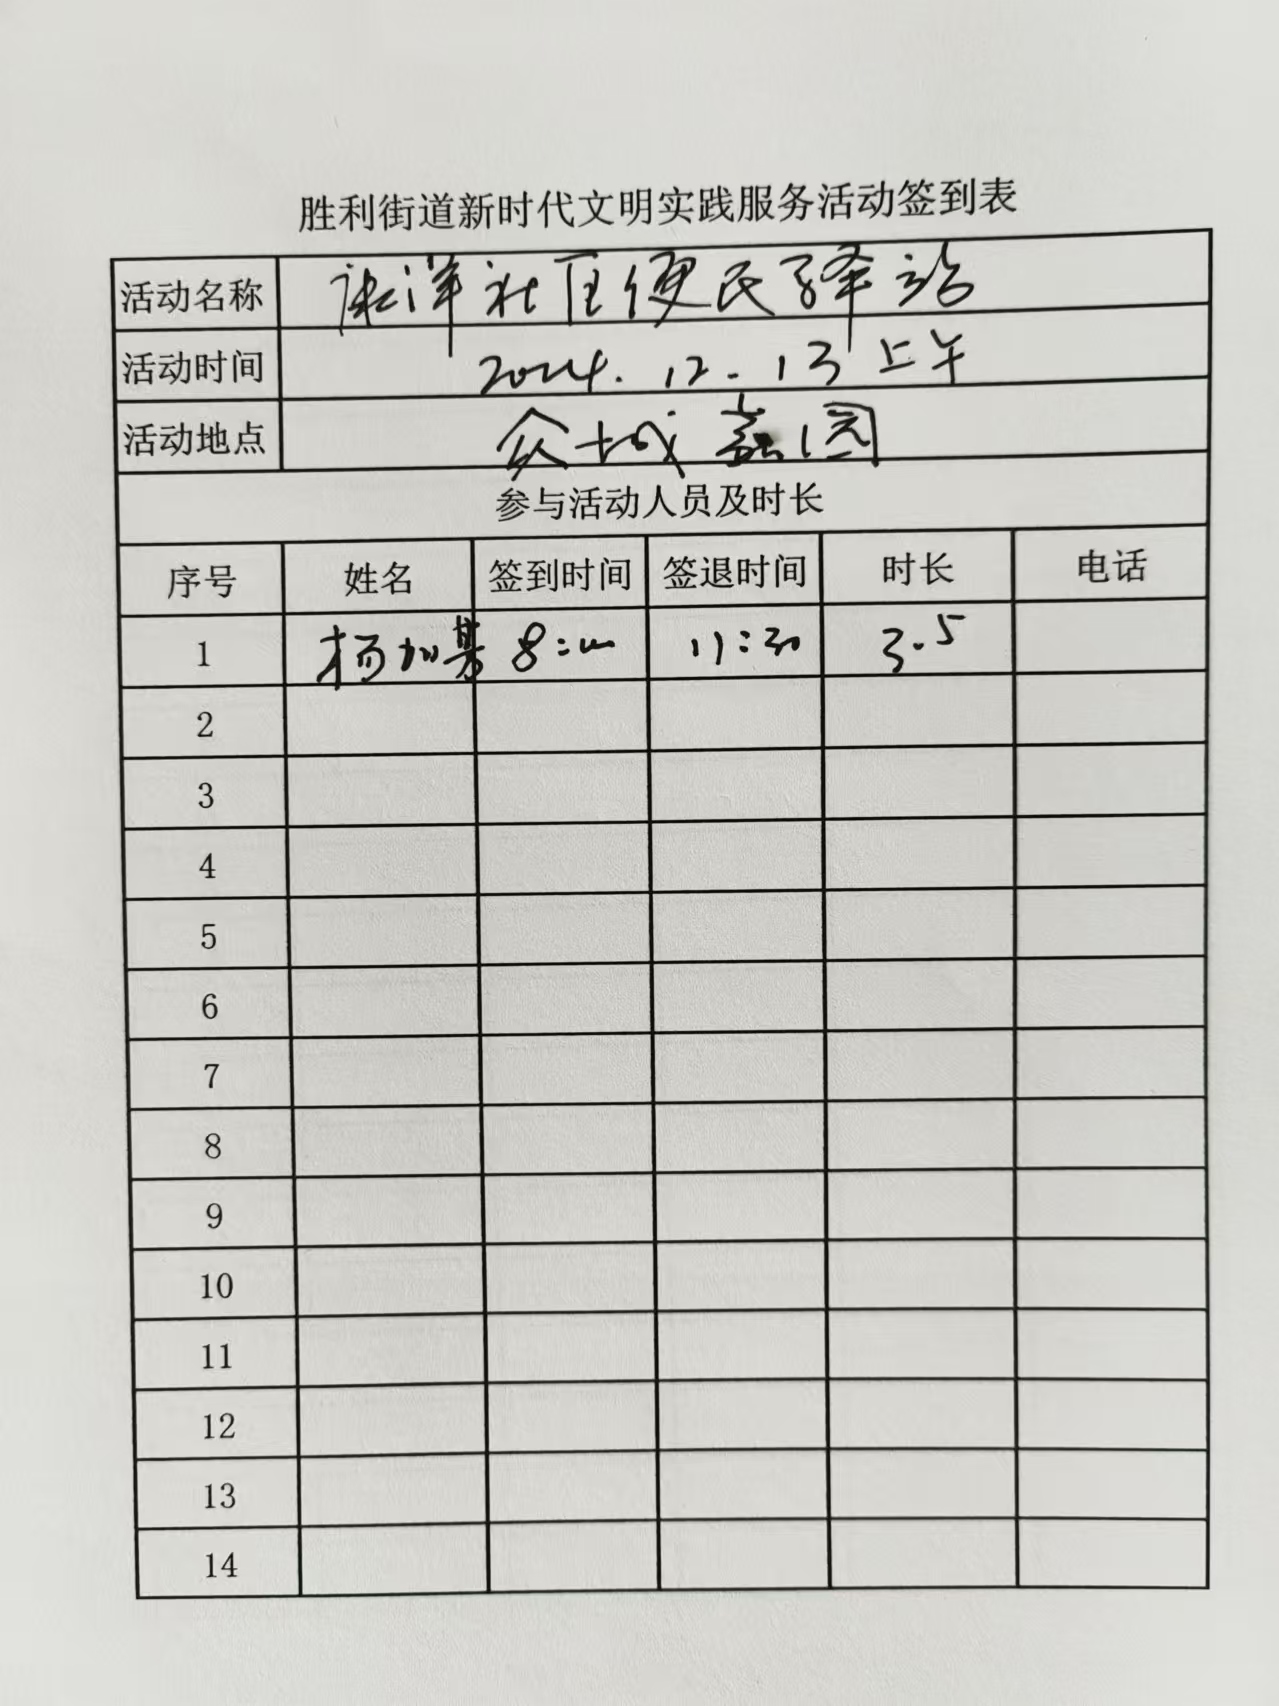 胜利街道新时代文明实践服务活动签到表
活动名称 洋社区便民驿站
活动时间 2024.12.13上午
活动地点 众城嘉园
参与活动人员及时长
序号 姓名 签到时间 签退时间 时长 电话
1 杨 8:00 11:30 3.5
2
3
4
5
6
7
8
9
10
11
12
13
14